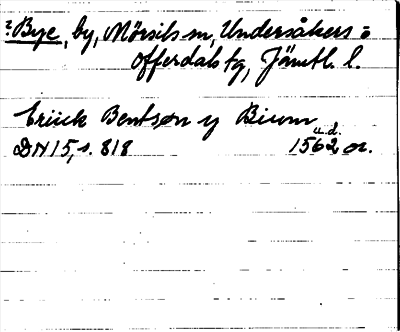 ? Bye, by, Mörsils sn, Undersåkers o
Offerdals tg, Jämtl. l.
Eriick Bentsøn y Biwm
u.d.
DN 15, s. 818 1562 or.